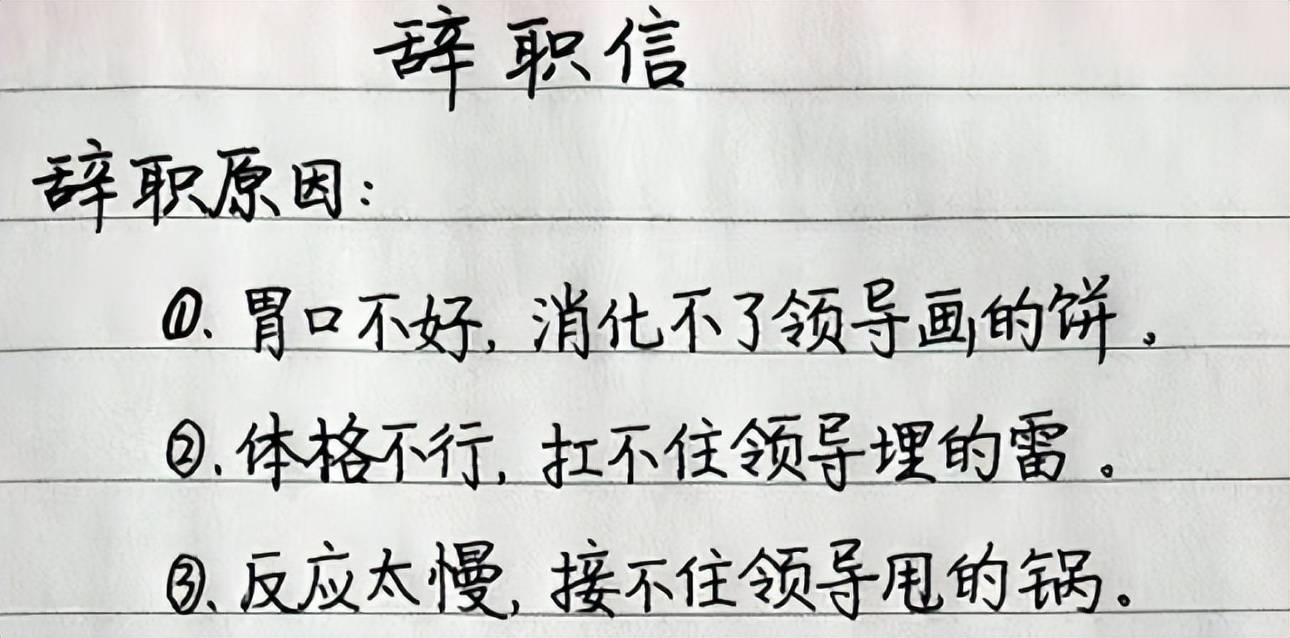 辞职信
辞职原因:
①. 胃口不好, 消化不了领导画的饼。
②. 体格不行, 扛不住领导埋的雷。
③. 反应太慢, 接不住领导甩的锅。